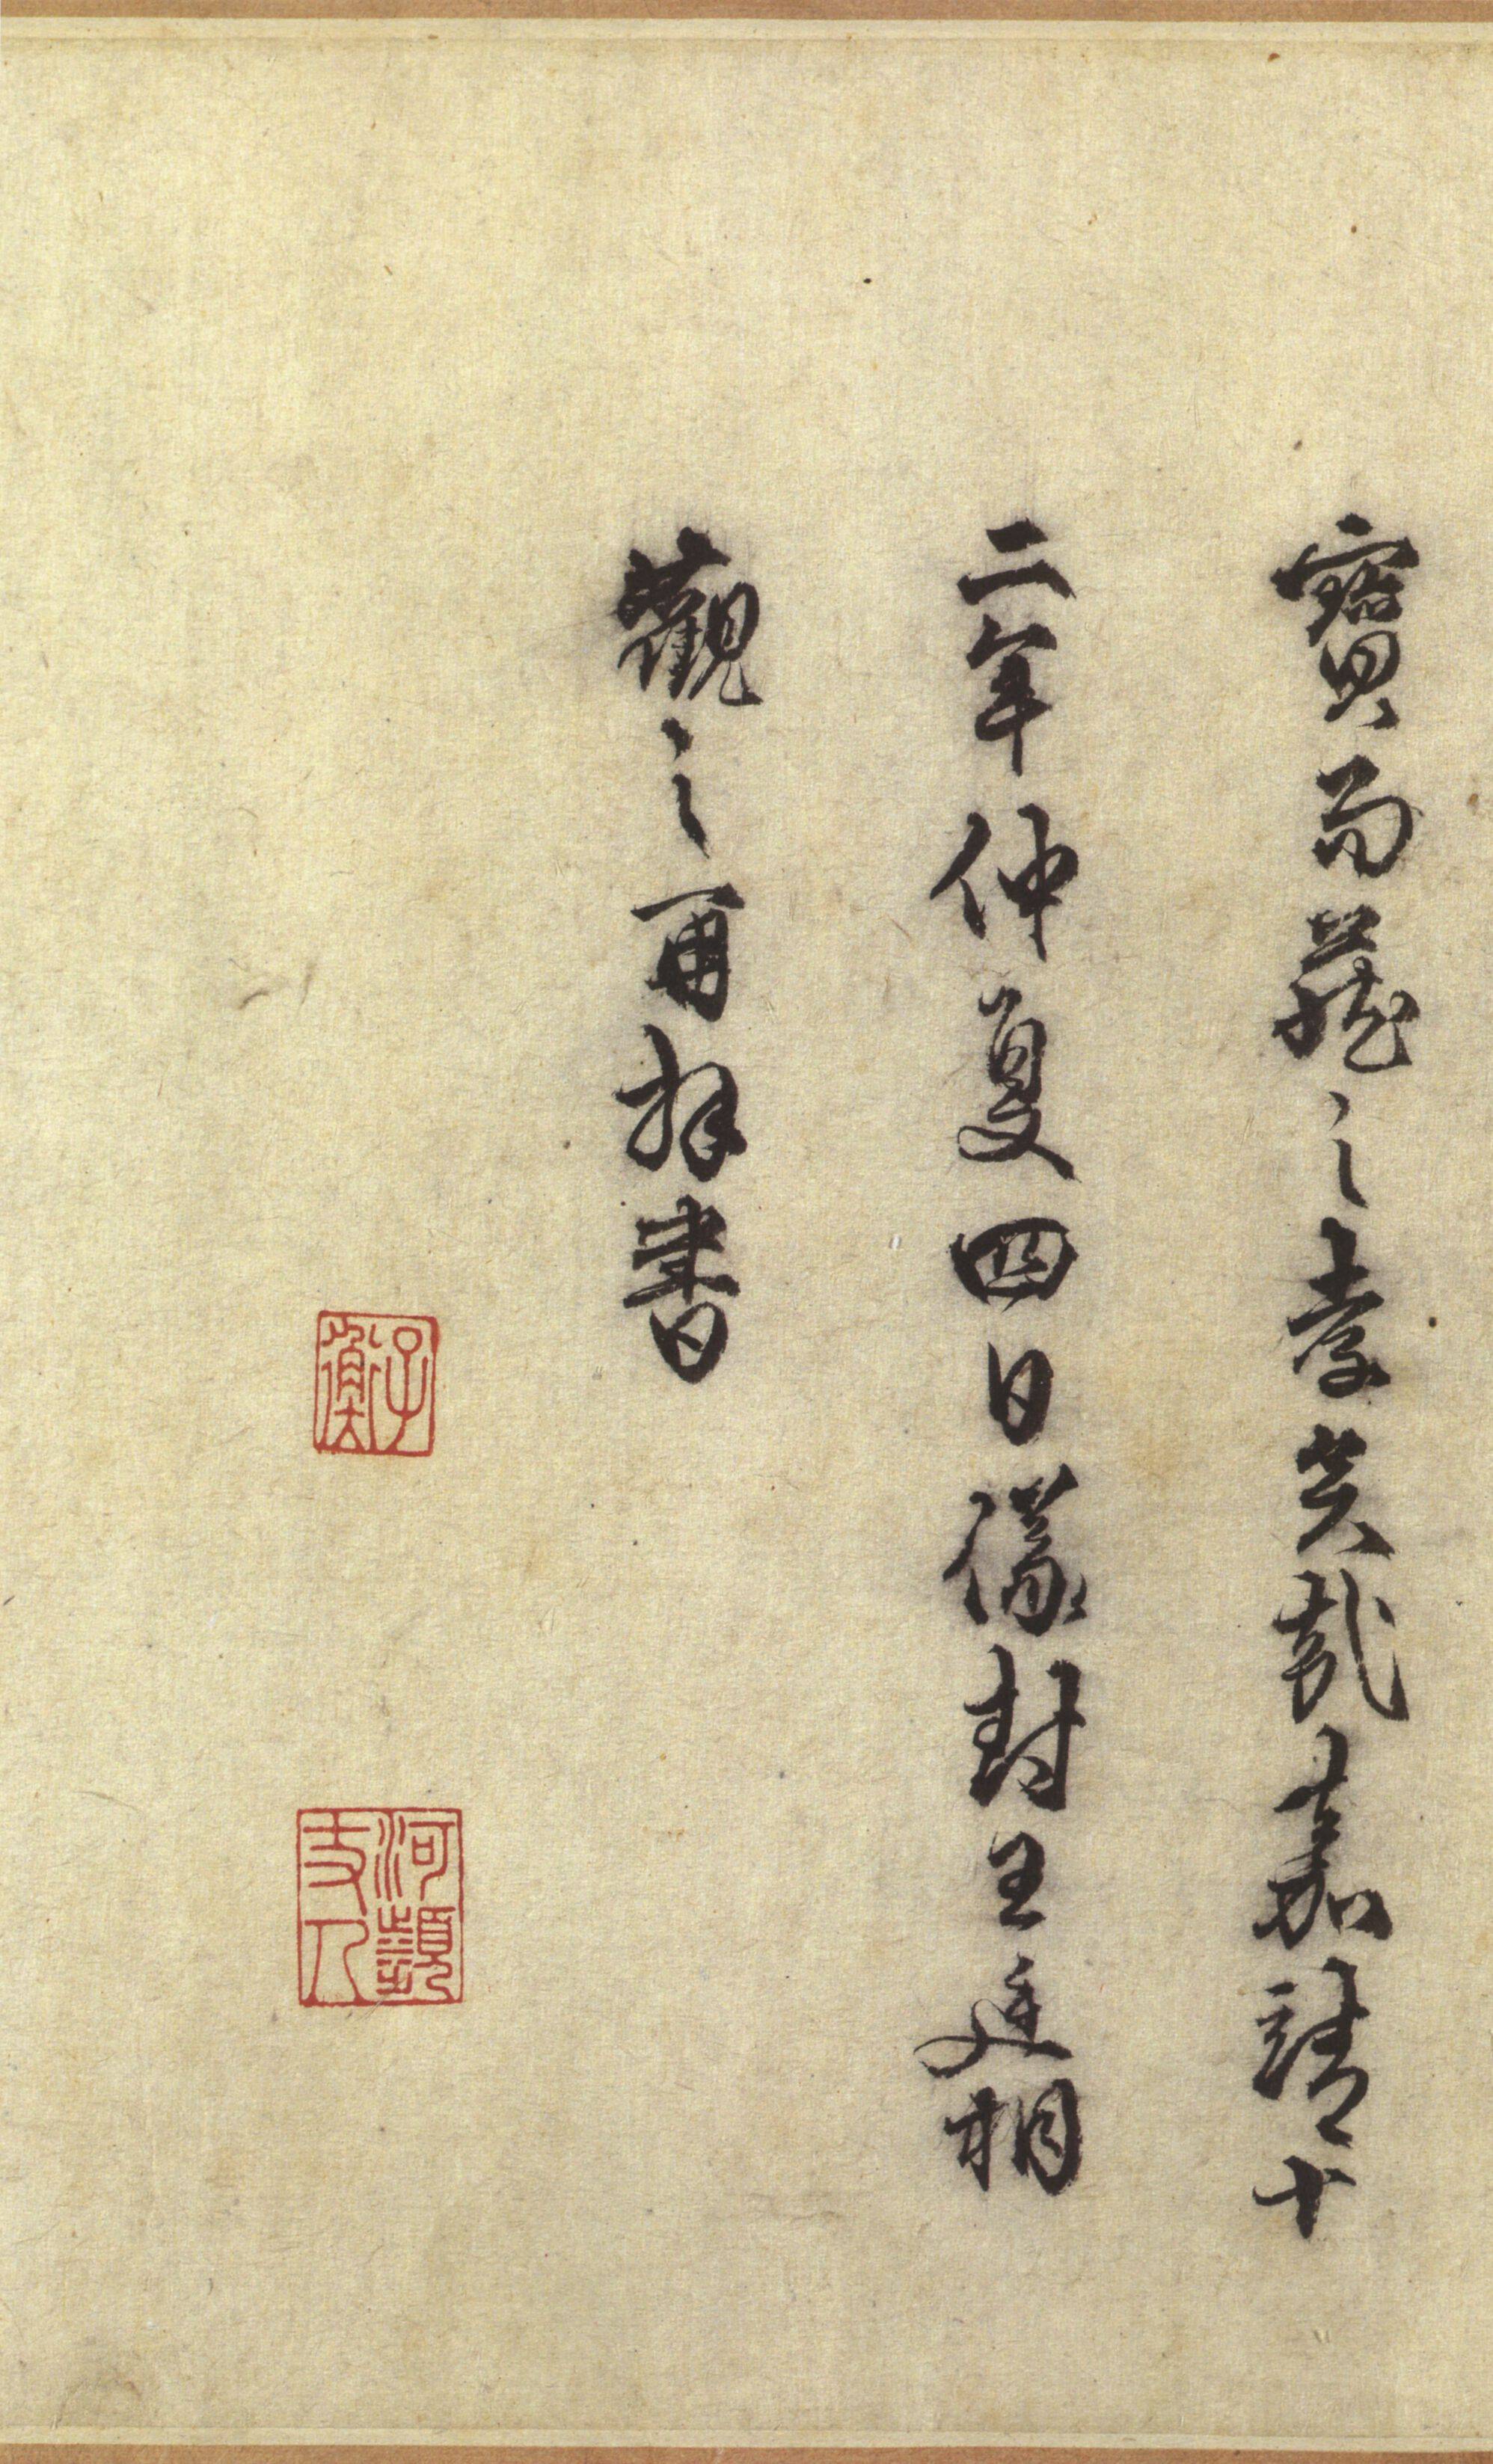 寶而藏之孝矣哉嘉靖十
二年仲夏四日儀封王廷相
觀之再拜書
子衡
河瀕丈人